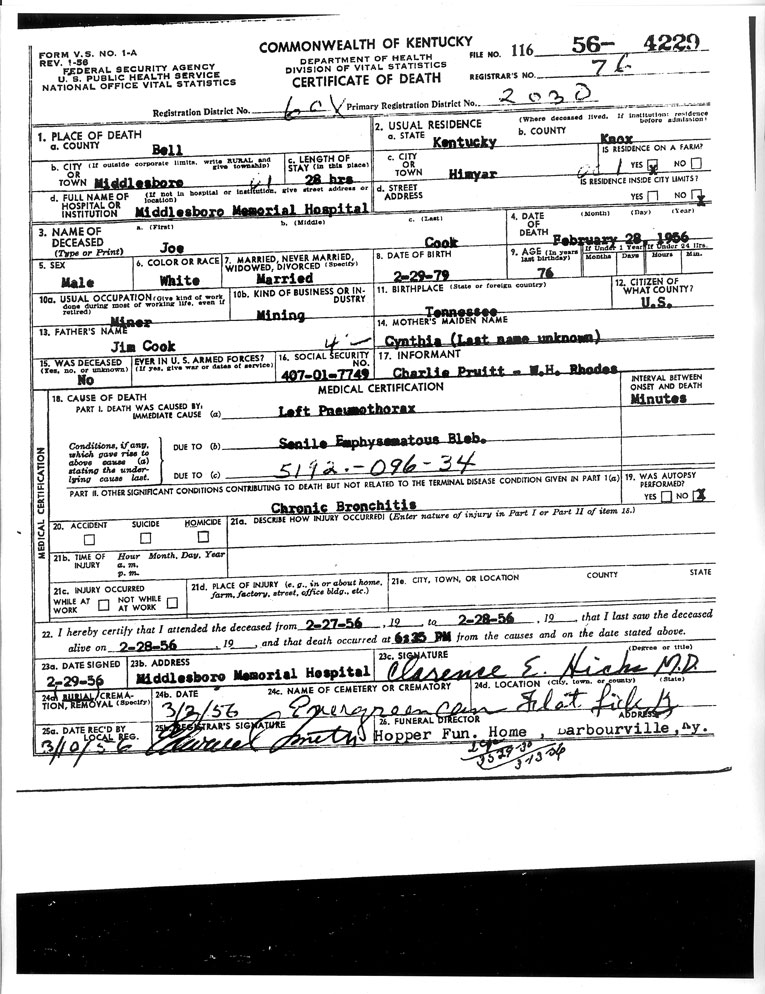 FORM V.S. NO. 1-A
REV. 1-56
FEDERAL SECURITY AGENCY
U. S. PUBLIC HEALTH SERVICE
NATIONAL OFFICE VITAL STATISTICS
COMMONWEALTH OF KENTUCKY
DEPARTMENT OF HEALTH
DIVISION OF VITAL STATISTICS
CERTIFICATE OF DEATH
FILE NO. 116 56- 4229
REGISTRAR'S NO. 76
Registration District No. 60X Primary Registration District No. 2030
1. PLACE OF DEATH
a. COUNTY Bell
2. USUAL RESIDENCE (Where deceased lived. If institution: residence before admission)
a. STATE Kentucky b. COUNTY Knox
b. CITY (If outside corporate limits, write RURAL and give township)
OR TOWN Middlesboro
c. LENGTH OF STAY (in this place) 28 hrs
c. CITY OR TOWN Himyar
IS RESIDENCE ON A FARM?
YES X NO
d. FULL NAME OF HOSPITAL OR INSTITUTION (If not in hospital or institution, give street address or location)
Middlesboro Memorial Hospital
d. STREET ADDRESS
IS RESIDENCE INSIDE CITY LIMITS?
YES NO X
3. NAME OF DECEASED (Type or Print)
a. (First) b. (Middle) c. (Last)
Joe Cook
4. DATE OF DEATH (Month) (Day) (Year)
February 28, 1956
5. SEX
Male
6. COLOR OR RACE
White
7. MARRIED, NEVER MARRIED, WIDOWED, DIVORCED (Specify)
Married
8. DATE OF BIRTH
2-29-79
9. AGE (In years last birthday)
76
If Under 1 Year Months Days
If Under 24 Hrs. Hours Min.
10a. USUAL OCCUPATION (Give kind of work done during most of working life, even if retired)
Miner
10b. KIND OF BUSINESS OR INDUSTRY
Mining
11. BIRTHPLACE (State or foreign country)
Tennessee
12. CITIZEN OF WHAT COUNTY?
U.S.
13. FATHER'S NAME
Jim Cook
14. MOTHER'S MAIDEN NAME
Cynthia (Last name unknown)
15. WAS DECEASED EVER IN U. S. ARMED FORCES?
(Yes, no, or unknown) (If yes, give war or dates of service)
No
16. SOCIAL SECURITY NO.
407-01-7749
17. INFORMANT
Charlie Pruitt - W.H. Rhodes
MEDICAL CERTIFICATION
MEDICAL CERTIFICATION
18. CAUSE OF DEATH
PART I. DEATH WAS CAUSED BY:
IMMEDIATE CAUSE (a) Left Pneumothorax
INTERVAL BETWEEN ONSET AND DEATH
Minutes
Conditions, if any, which gave rise to above cause (a) stating the underlying cause last.
DUE TO (b) Senile Emphysematous Bleb.
DUE TO (c) 5192.-096-34
PART II. OTHER SIGNIFICANT CONDITIONS CONTRIBUTING TO DEATH BUT NOT RELATED TO THE TERMINAL DISEASE CONDITION GIVEN IN PART I(a)
Chronic Bronchitis
19. WAS AUTOPSY PERFORMED?
YES NO X
20. ACCIDENT SUICIDE HOMICIDE
21a. DESCRIBE HOW INJURY OCCURRED? (Enter nature of injury in Part I or Part II of item 18.)
21b. TIME OF INJURY Hour Month, Day, Year
a. m.
p. m.
21c. INJURY OCCURRED
WHILE AT WORK NOT WHILE AT WORK
21d. PLACE OF INJURY (e. g., in or about home, farm, factory, street, office bldg., etc.)
21e. CITY, TOWN, OR LOCATION COUNTY STATE
22. I hereby certify that I attended the deceased from 2-27-56, 19 , to 2-28-56, 19 , that I last saw the deceased
alive on 2-28-56, 19 , and that death occurred at 6:25 PM from the causes and on the date stated above.
23a. DATE SIGNED
2-29-56
23b. ADDRESS
Middlesboro Memorial Hospital
23c. SIGNATURE (Degree or title)
Clarence E. Hicks M.D.
24a. BURIAL, CREMATION, REMOVAL (Specify)
24b. DATE
3/2/56
24c. NAME OF CEMETERY OR CREMATORY
Evergreen Cem
24d. LOCATION (City, town, or county) (State)
Flat Lick Ky
25a. DATE REC'D BY LOCAL REG.
3/10/56
25b. REGISTRAR'S SIGNATURE
Smith
26. FUNERAL DIRECTOR ADDRESS
Hopper Fun. Home , Barbourville, Ky.
3-13-56